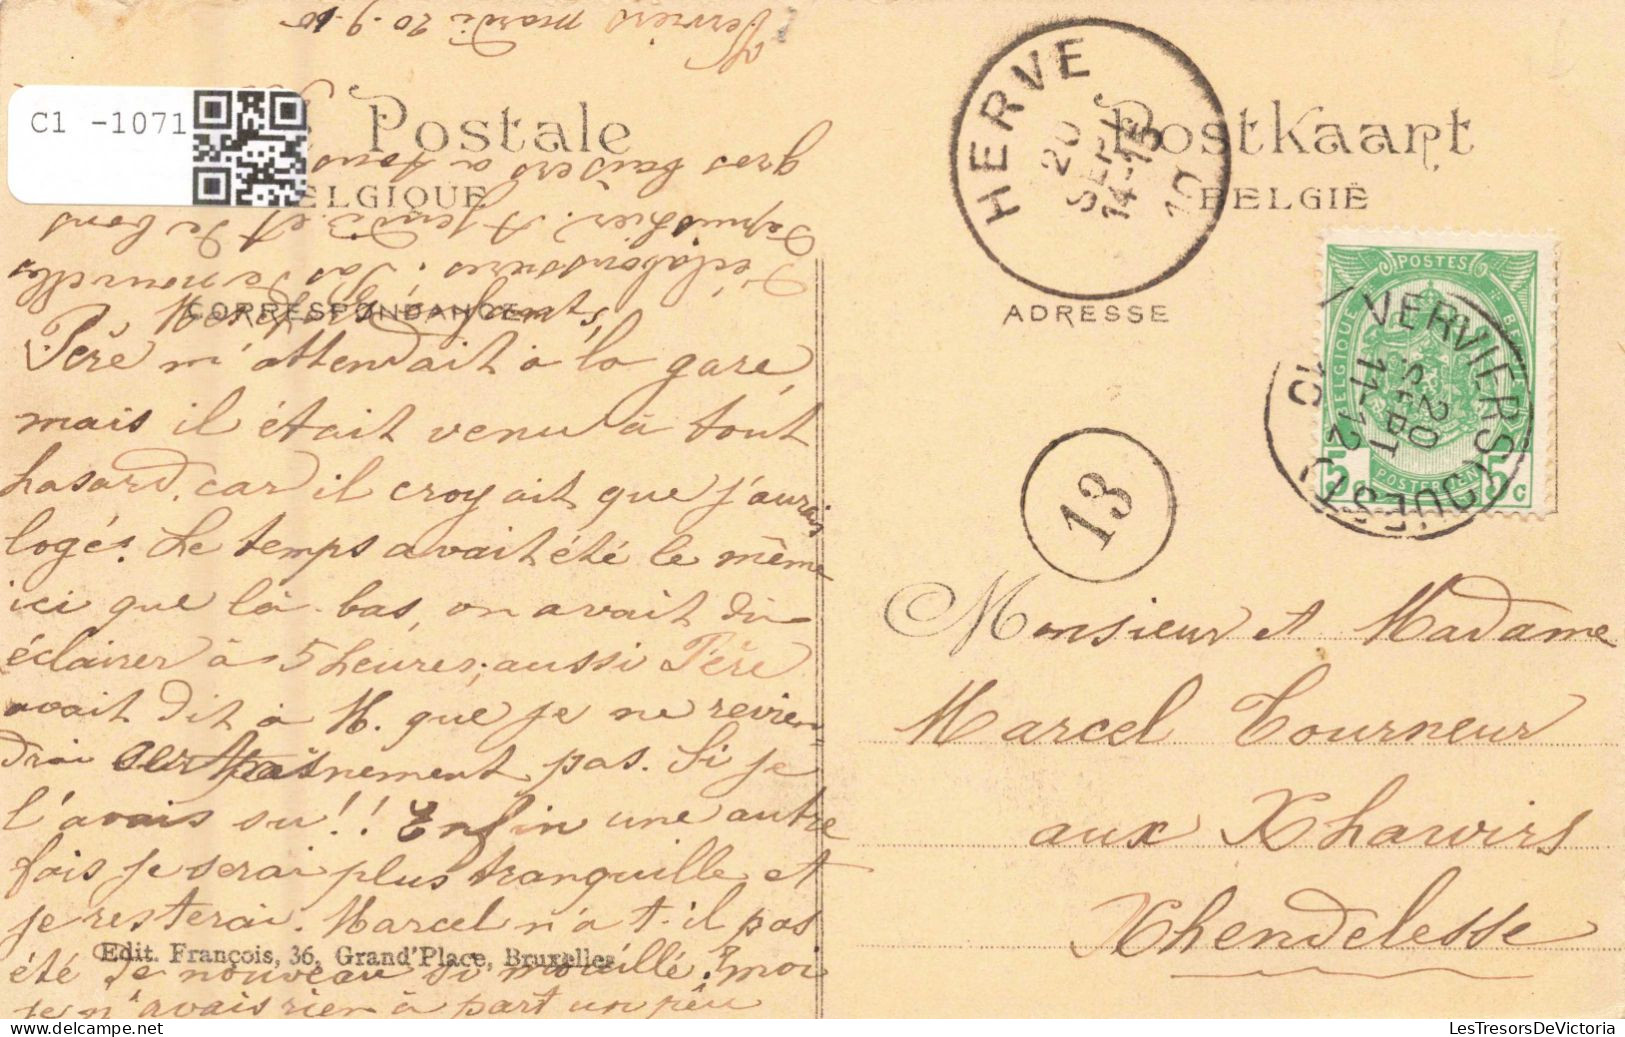 Verviers mardi 20-9-10
C1 -1071
Postale
Postkaart
ELGIQUE
BELGIË
CORRESPONDANCE
ADRESSE
HERVE
20
SEPT
14-15
10
POSTES
BELGIQUE
5 c
5 c
VERVIERS (OUEST)
20
SEPT
11-12
13
Mes chers enfants,
Père m'attendait à la gare,
mais il était venu à tout
hasard, car il croyait que j'aurais
logé. Le temps avait été le même
ici que là-bas, on avait dû
éclairer à 5 heures; aussi Père
avait dit à M. que je ne revien-
drai certainement pas. Si je
l'avais su!! Enfin une autre
fois je serai plus tranquille et
je resterai. Marcel n'a t-il pas
été de nouveau si mouillé? moi
je n'avais rien à part un peu
d'éclaboussures. Pas de nouvelles
depuis hier. A jeudi et de bons
gros baisers à tous
Edit. François, 36, Grand'Place, Bruxelles
Monsieur et Madame
Marcel Tourneur
aux Xhawirs
Xhendelesse
LesTresorsDeVictoria.com